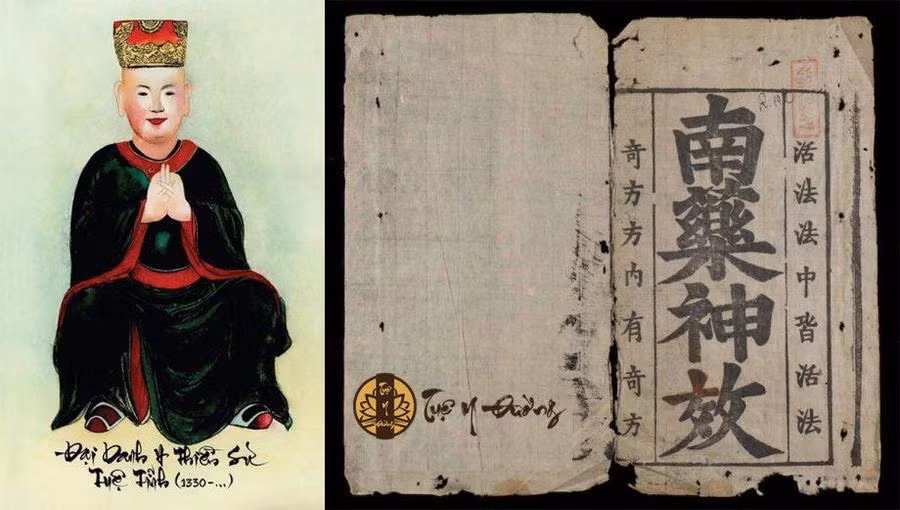 Đại Danh Y Thiền Sư
Tuệ Tĩnh (1330-...)
活法法中皆活法
南藥神效
奇方方内有奇方
Tuệ Y Đường